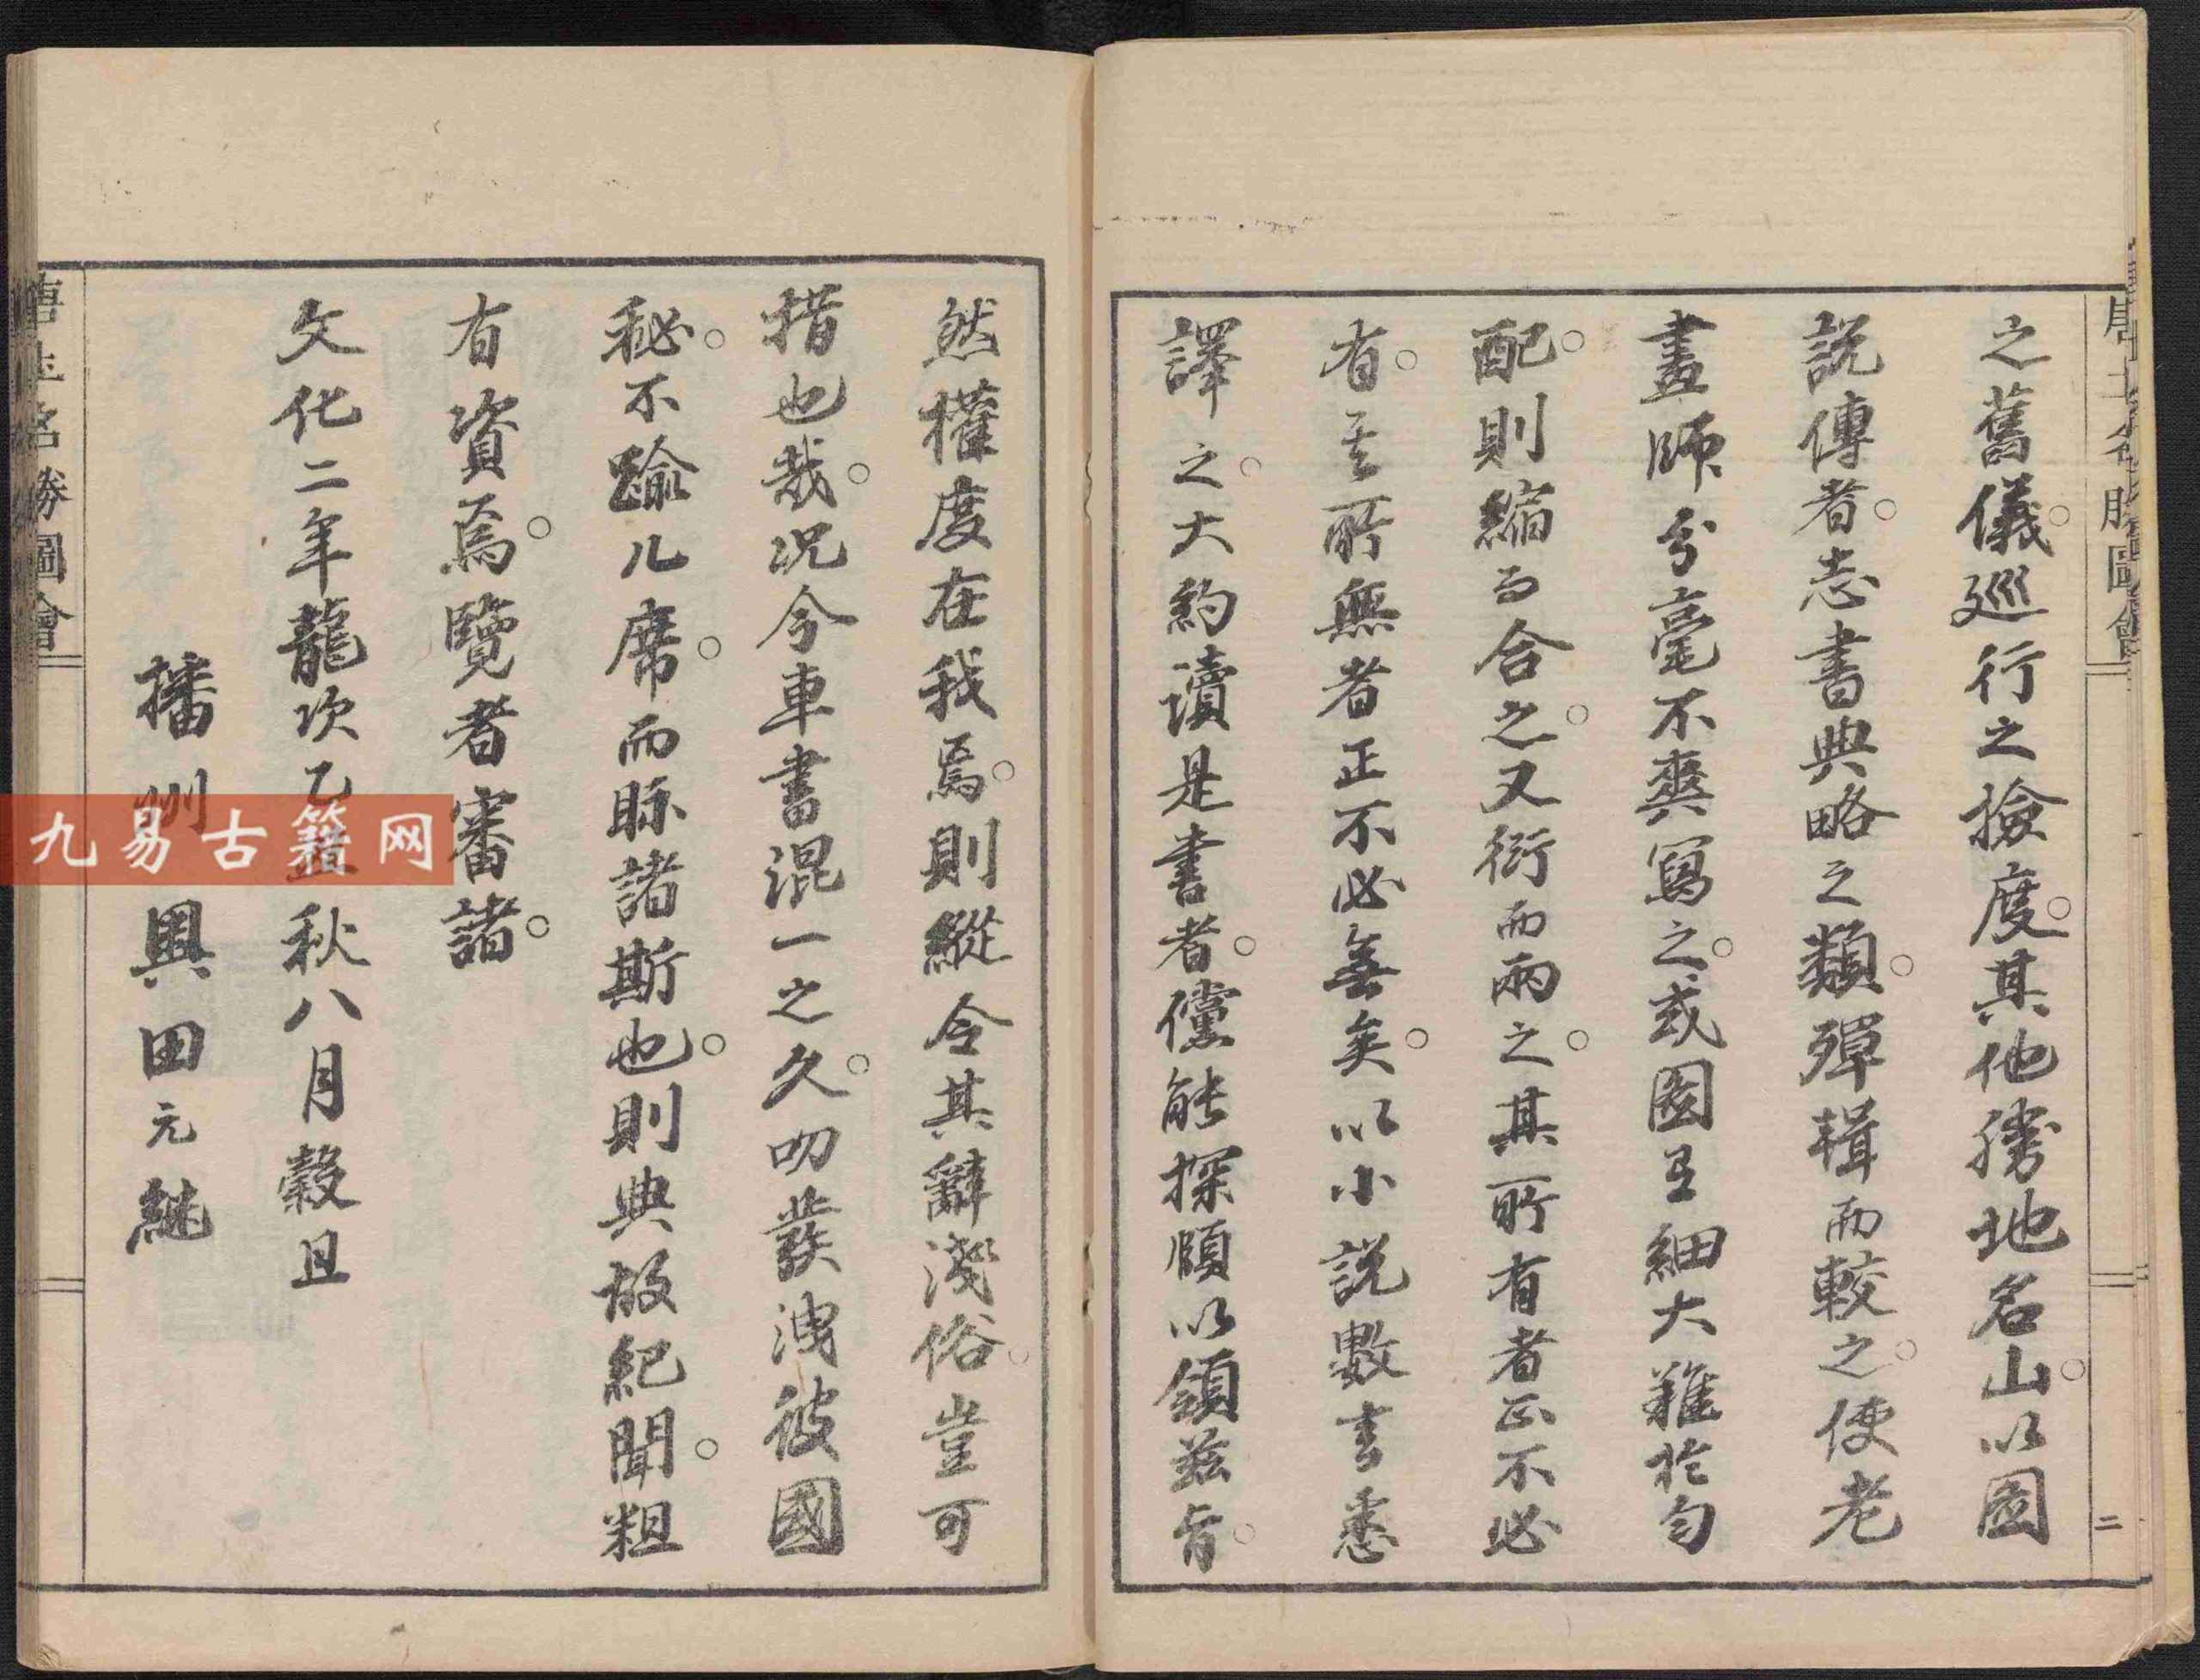 之舊儀。巡行之撿度。其他勝地名山。以圖
說傳者。志書典略之類。殫輯而較之。使老
畫師分毫不爽寫之。或圖且細大難於勻
配。則縮而合之。又衍而兩之。其所有者正不必
有。其所無者正不必無矣。以小說數書悉
譯之。大約讀是書者。儻能探賾以領茲旨。
然權度在我焉。則縱令其辭淺俗。豈可
措也哉。況今車書混一之久。叨發洩彼國
秘。不踰几席。而眎諸斯也。則典故紀聞。粗
有資焉。覽者審諸。
文化二年龍次乙丑秋八月穀旦
播州 奧田元継
唐土名勝圖會
唐土名勝圖會
二
九易古籍网